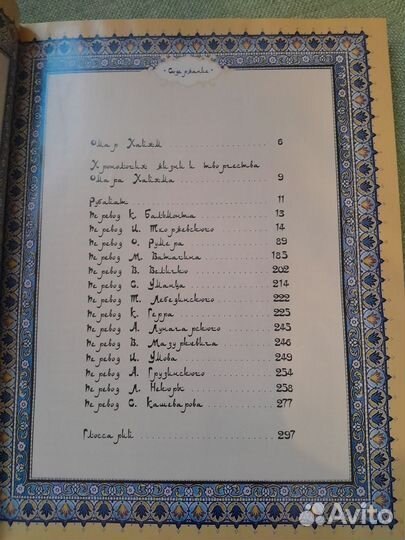 Содержание
Омар Хайям 6
Хронология жизни и творчества
Омара Хайяма 9
Рубайат 11
Перевод К. Бальмонта 13
Перевод И. Тхоржевского 14
Перевод О. Румера 89
Перевод М. Ватагина 185
Перевод В. Величко 202
Перевод С. Уманца 214
Перевод Т. Лебединского 222
Перевод К. Герра 225
Перевод А. Лунагарского 245
Перевод В. Мазуркевича 246
Перевод И. Умова 249
Перевод А. Грузинского 254
Перевод Л. Некоры 258
Перевод С. Кашеварова 277
Глоссарий 297
Avito